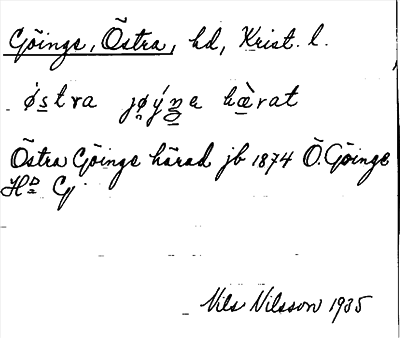 Göinge, Östra, hd, Krist. l.
östra jöyna hærat
Östra Göinge härad jb 1874 Ö. Göinge
Hd Cy
Nils Nilsson 1935